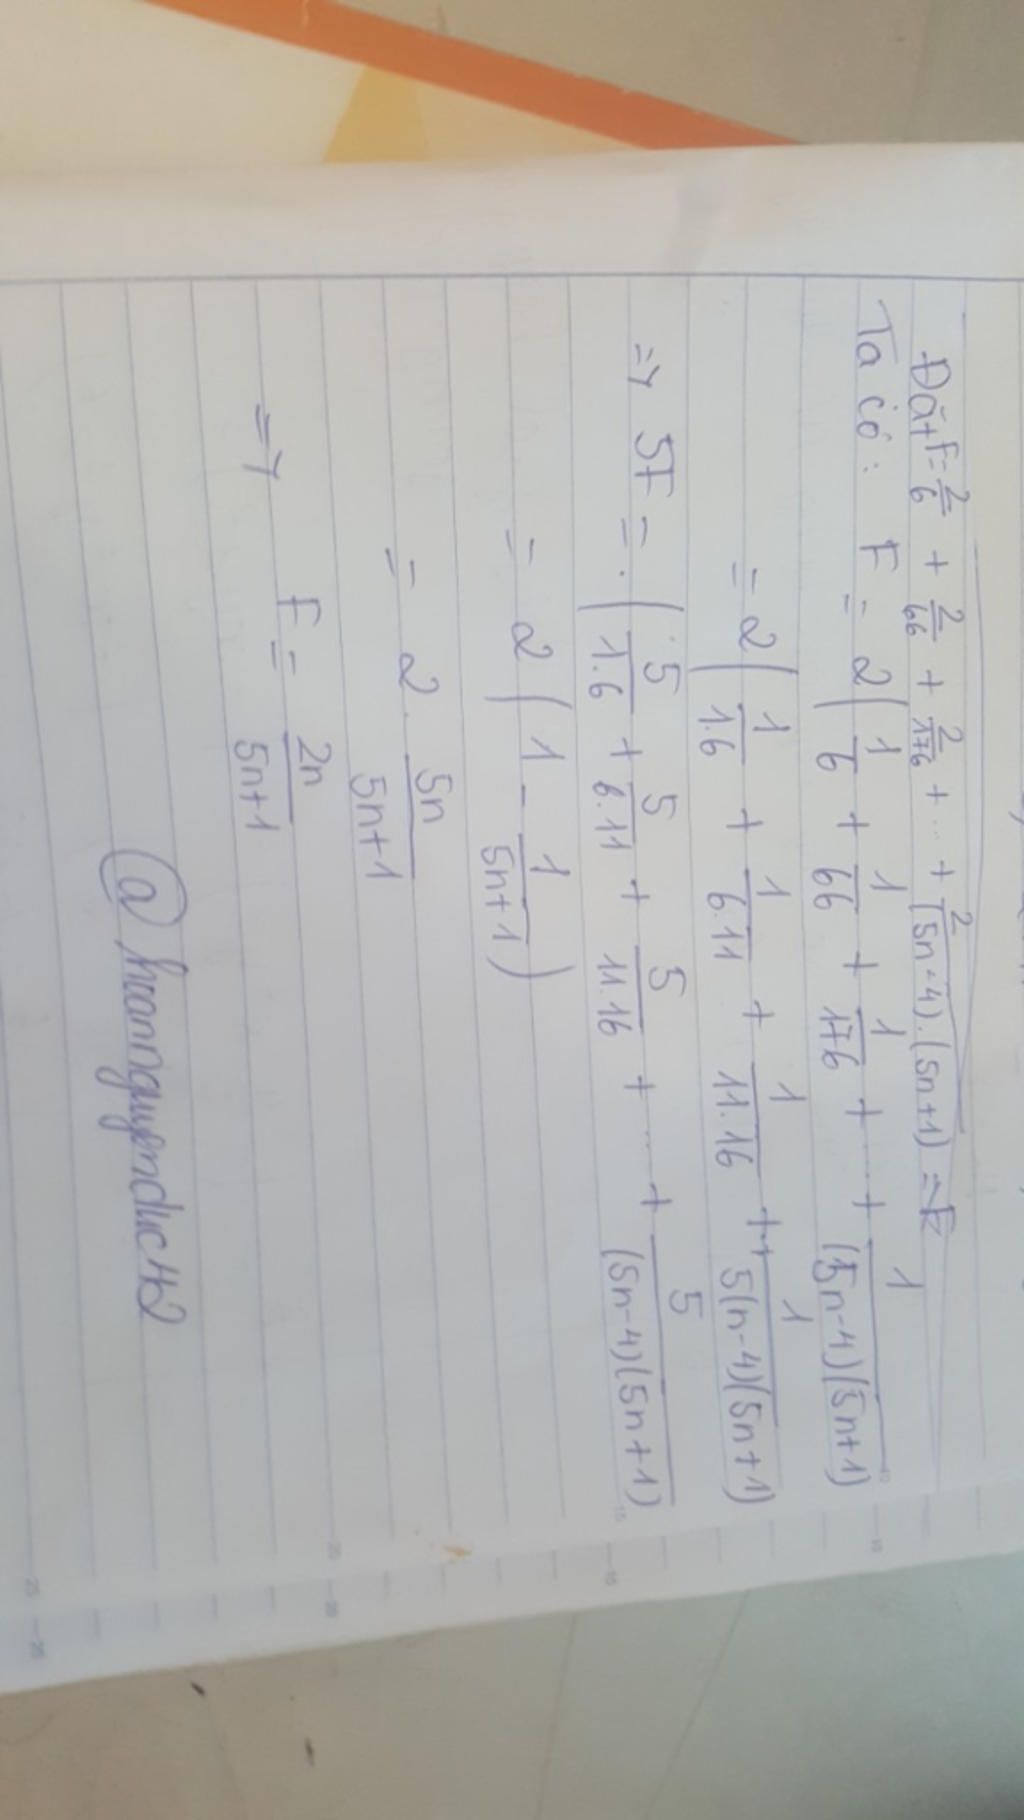 Đặt F = 2/6 + 2/66 + 2/176 + ... + 2/(5n-4).(5n+1) = F
Ta có: F = 2(1/6 + 1/66 + 1/176 + ... + 1/(5n-4)(5n+1)
= 2(1/1.6 + 1/6.11 + 1/11.16 + .. + 1/5(n-4)(5n+1)
=> 5F = . (5/1.6 + 5/6.11 + 5/11.16 + ... + 5/(5n-4)(5n+1)
= 2(1 - 1/5n+1)
= 2. 5n/5n+1
=> F = 2n/5n+1
@ hoannguyenducH2